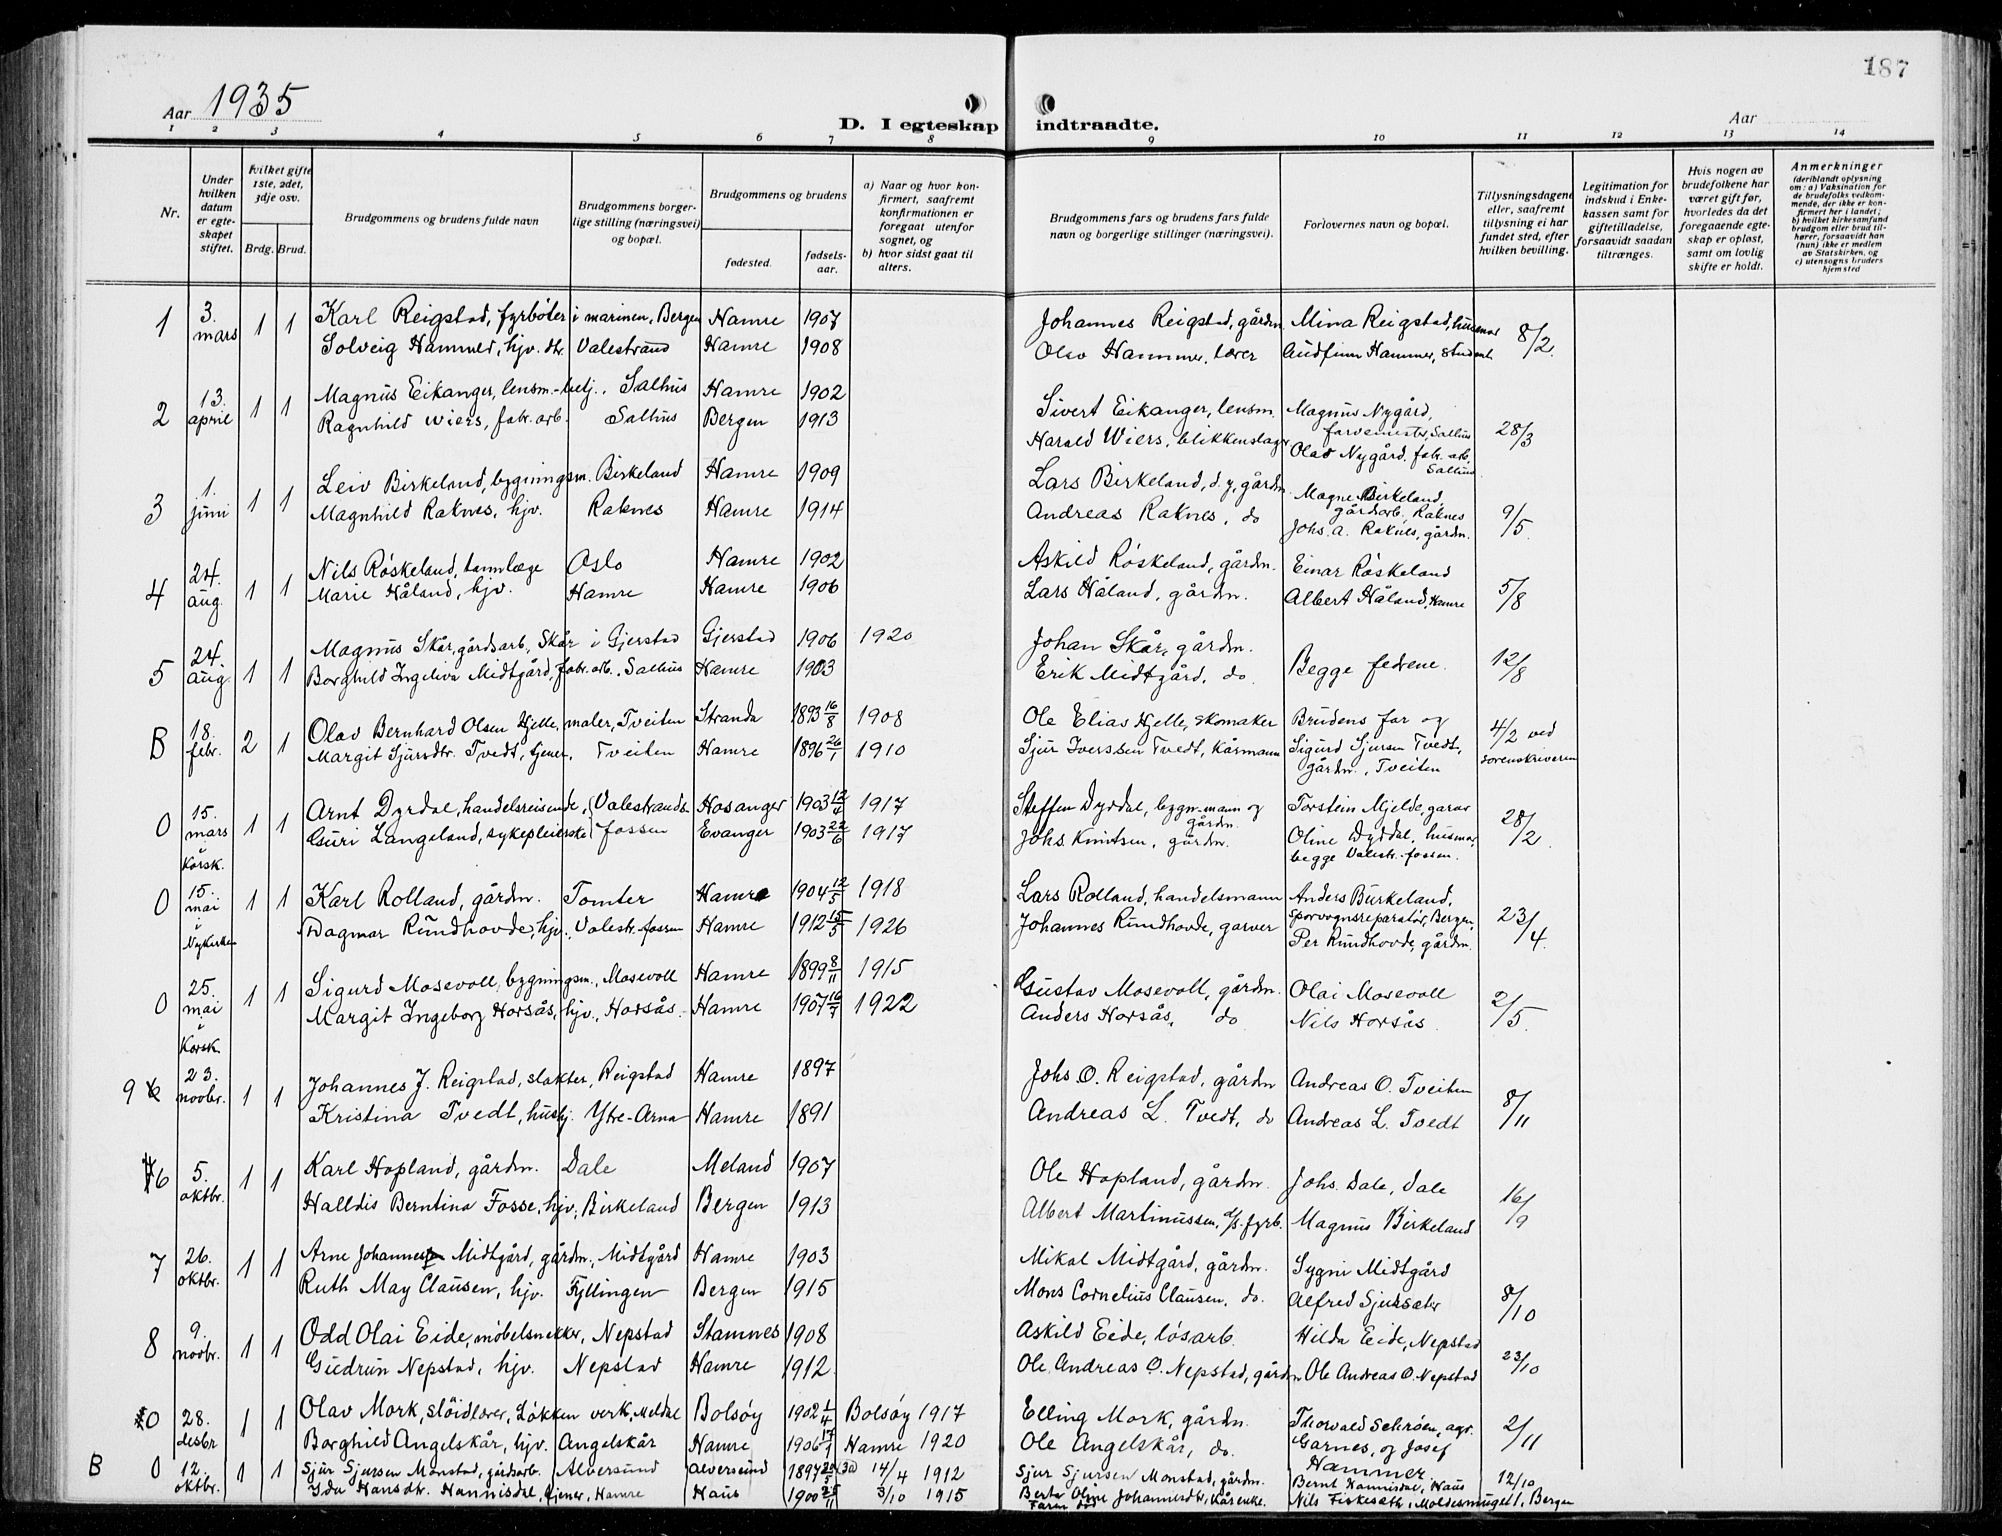 187
Aar 1935
Aar
D. I egteskap indtraadte.
1 2 3 4 5 6 7 8 9 10 11 12 13 14
Nr.
Under hvilken datum er egteskapet stiftet.
Hvilket gifte 1ste, 2det, 3dje osv.
Brdg. Brud.
Brudgommens og brudens fulde navn
Brudgommens borgerlige stilling (næringsvei) og bopæl.
Brudgommens og brudens
fødested.
fødselsaar.
a) Naar og hvor konfirmert, saafremt konfirmationen er foregaat utenfor sognet, og
b) hvor sidst gaat til alters.
Brudgommens fars og brudens fars fulde navn og borgerlige stillinger (næringsvei).
Forlovernes navn og bopæl.
Tillysningsdagene eller, saafremt tillysning ei har fundet sted, efter hvilken bevilling.
Legitimation for indskud i Enkekassen samt for giftetilladelse, forsaavidt saadan tiltrænges.
Hvis nogen av brudefolkene har været gift før, hvorledes da det foregaaende egteskap er opløst, samt om lovlig skifte er holdt.
Anmerkninger
(deriblandt oplysning om: a) Vaksination for de brudefolks vedkommende, der ikke er konfirmert her i landet; b) hvilket kirkesamfund brudgom eller brud tilhører, forsaavidt han (hun) ikke er medlem av Statskirken, og c) utensogns bruders hjemsted
1 3. mars 1 1 Karl Reigstad, fyrbøter i marinen, Bergen Hamre 1907 Johannes Reigstad, gårdm. Mina Reigstad, husmor 8/2.
Solveig Hammer, hjv. dtr. Valestrand Hamre 1908 Olav Hammer, lærer Audfinn Hammer, student
2 13. april 1 1 Magnus Eikanger, lensm.-betj., Salhus Hamre 1902 Sivert Eikanger, lensm. Magnus Nygård, farvemester, Salhus 28/3
Ragnhild Wiers, fabr. arb. Salhus Bergen 1913 Harald Wiers, blikkenslager Olav Nygård, fabr. arb. Salhus
3 1. juni 1 1 Leiv Birkeland, bygningsm. Birkeland Hamre 1909 Lars Birkeland, d.y, gårdm. Magne Birkeland, gårdsarb, Raknes 9/5.
Magnhild Raknes, hjv. Raknes Hamre 1914 Andreas Raknes, do Johs. A. Raknes, gårdm.
4 24. aug. 1 1 Nils Røskeland, tannlæge Oslo Hamre 1902 Askild Røskeland, gårdm. Einar Røskeland 5/8
Marie Håland, hjv. Hamre Hamre 1906 Lars Håland, gårdm. Albert Håland, Hamre
5 24. aug 1 1 Magnus Skår, gårdsarb, Skår i Gjerstad Gjerstad 1906 1920 Johan Skår, gårdm. Begge fedrene. 12/8
Borghild Ingeliva Midtgård, fabr. arb. Salhus Hamre 1903 Erik Midtgård, do.
B 18. febr. 2 1 Olav Bernhard Olsen Hjelle, maler, Tveiten Stranda 1893 16/8 1908 Ole Elias Hjelle, skomaker Brudens far og 4/2 ved sorenskriveren
Margit Sjursdtr. Tvedt, tjener, Tveiten Hamre 1896 26/1 1910 Sjur Iverssen Tvedt, kårmann Sigurd Sjursen Tvedt, gårdm., Tveiten
0 15. mars i Korsk. 1 1 Arnt Dyrdal, handelsreisende, Valestrands- Hosanger 1903 12/4 1917 Steffen Dyrdal, bygn.-mann og gårdm. Torstein Mjelde, garver 28/2.
Guri Langeland, sykepleierske fossen Evanger 1903 22/6 1917 Johs. Knutsen, gårdm. Oline Dyrdal, husmor, begge Valestr.-fossen.
0 15. mai i Nykirken 1 1 Karl Rolland, gårdm. Tomter Hamre 1904 12/5 1918 Lars Rolland, handelsmann Anders Birkeland, sporvognsreparatør, Bergen, 23/4.
Dagmar Rundhovde, hjv., Valestr. fossen Hamre 1912 15/5 1926 Johannes Rundhovde, garver Per Rundhovde, gårdm.
0 25. mai i Korsk. 1 1 Sigurd Mosevoll, bygningsm., Mosevoll Hamre 1899 8/11 1915 Gustav Mosevoll, gårdm. Olai Mosevoll 2/5.
Margit Ingeborg Horsås, hjv., Horsås. Hamre 1907 16/7 1922 Anders Horsås, do Nils Horsås.
9 23. novbr. 1 1 Johannes J. Reigstad, slakter, Reigstad Hamre 1897 Johs. O. Reigstad, gårdm Andreas O. Tveiten 8/11
Kristina Tvedt, hushj. Ytre-Arna Hamre 1891 Andreas L. Tvedt, do Andreas L. Tvedt
6 5. oktbr. 1 1 Karl Hopland, gårdm. Dale Meland 1907 Ole Hopland, gårdm. Johs. Dale, Dale 16/9
Halldis Berntina Fosse, hjv., Birkeland Bergen 1913 Albert Martinussen, d/s. fyrb. Magnus Birkeland
7 26. oktbr. 1 1 Arne Johannes Midtgård, gårdm., Midtgård Hamre 1903 Mikal Midtgård, gårdm. Sygni Midtgård 8/10
Ruth May Clausen, hjv. Fyllingen Bergen 1915 Mons Cornelius Clausen, do. Alfred Sjursæter
8 9. novbr. 1 1 Odd Olai Eide, møbelsnekker, Nepstad Stamnes 1908 Askild Eide, løsarb. Hilda Eide, Nepstad 23/10
Gudrun Nepstad, hjv. Nepstad Hamre 1912 Ole Andreas O. Nepstad, gårdm Ole Andreas O. Nepstad
0 28. desbr 1 1 Olav Mork, sløidlærer, Løkken verk, Meldal Bolsøy 1902 1/4 Bolsøy 1917 Elling Mork, gårdm. Thorvald Schrøen, agr. Garnes, og Josef Hammer 2/11
Borghild Angelskår, hjv. Angelskår Hamre 1906 17/1 Hamre 1920 Ole Angelskår, do.
B 0 12. oktbr. 1 1 Sjur Sjursen Monstad, gårdsarb. Alversund Alversund 1897 14/4 1912 Sjur Sjursen Monstad, gårdm. Bernt Hannisdal, Haus 12/10
Ida Hansdtr. Hannisdal, tjener, Hamre Haus 1900 25/11 3/10 1915 Berta Oline Johannesdtr, kårenke. Faren død Nils Fiskeseth, Moldesmuget 1, Bergen